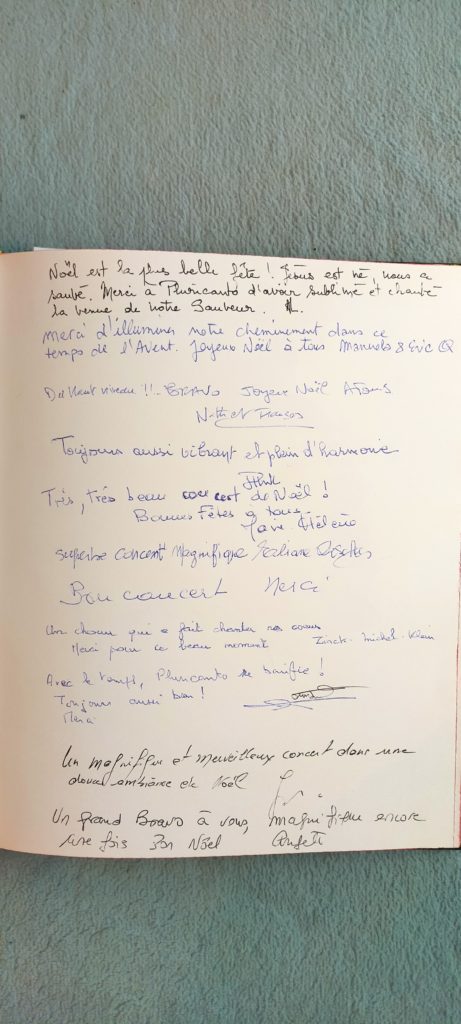 Noël est la plus belle fête ! Jésus est né, nous a
sauvé. Merci à Pluricanto d'avoir sublimé et chanté
la venue de notre Sauveur.
Merci d'illuminer notre cheminement dans ce
temps de l'Avent. Joyeux Noël à tous
Du Haut niveau !!.. BRAVO Joyeux Noël A Tous
Toujours aussi vibrant et plein d'harmonie
Très, très beau concert de Noël !
Bonnes Fêtes à tous
Marie Hélène
Superbe concert Magnifique
Bon concert Merci
Un choeur qui a fait chanter nos coeurs
Merci pour ce beau moment Zinck. Michel. Klein
Avec le temps, Pluricanto se bonifie !
Toujours aussi bon !
Merci
Un magnifique et merveilleux concert dans une
douce ambiance de Noël
Un grand Bravo à vous, magnifique encore
une fois Bon Noël